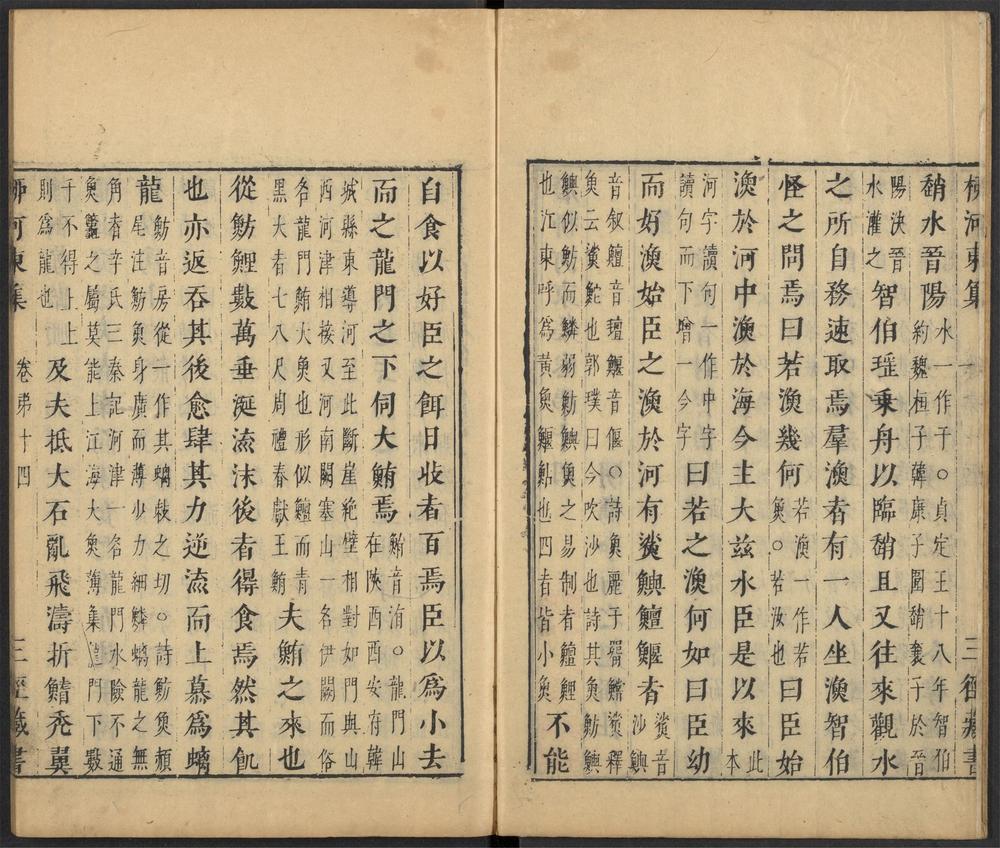 柳河東集 三徑藏書
趙水晉陽水一作干○貞定王十八年智伯
約魏桓子韓康子圍趙襄子於晉
陽決晉水灌之智伯瑶乗舟以臨趙且又往來觀水
之所自務速取焉羣漁者有一人坐漁智伯
怪之問焉曰若漁幾何若漁一作若魚○若汝也曰臣始
漁於河中漁於海今主大兹水臣是以來此本
河字讀句一作中字
讀句而下增一今字曰若之漁何如曰臣幼
而好漁始臣之漁於河有鯊鱮鱣鰋者鯊音沙鱮
音叙鱣音邅鰋音偃○詩魚麗于罶鱨鯊釋
魚云鯊鮀也郭璞曰今吹沙也詩其魚魴鱮
鱮似魴而鱗弱魴鱮魚之易制者鱣鯉
也江東呼爲黃魚鰋鮎也四者皆小魚不能
自食以好臣之餌日收者百焉臣以爲小去
而之龍門之下伺大鮪焉鮪音洧○龍門山在陝西西安府韓
城縣東導河至此斷崖絶壁相對如門與山
西河津相接又河南闕塞山一名伊闕而俗
名龍門大魚也形似鱣而青
黑大者七八尺周禮春獻王鮪夫鮪之來也
從魴鯉數萬垂涎流沫後者得食焉然其飢
也亦返吞其後愈肆其力逆流而上慕爲螭
龍魴音房從一作其螭敕之切○詩魴魚頳
尾注魴魚身廣而薄少力細鱗螭龍之無
角者辛氏三秦記河津一名龍門水險不通
魚鼈之屬莫能上江海大魚薄集龍門下數
千不得上上
則爲龍也及夫抵大石亂飛濤折鰭秃翼
柳河東集 卷第十四 三徑藏書